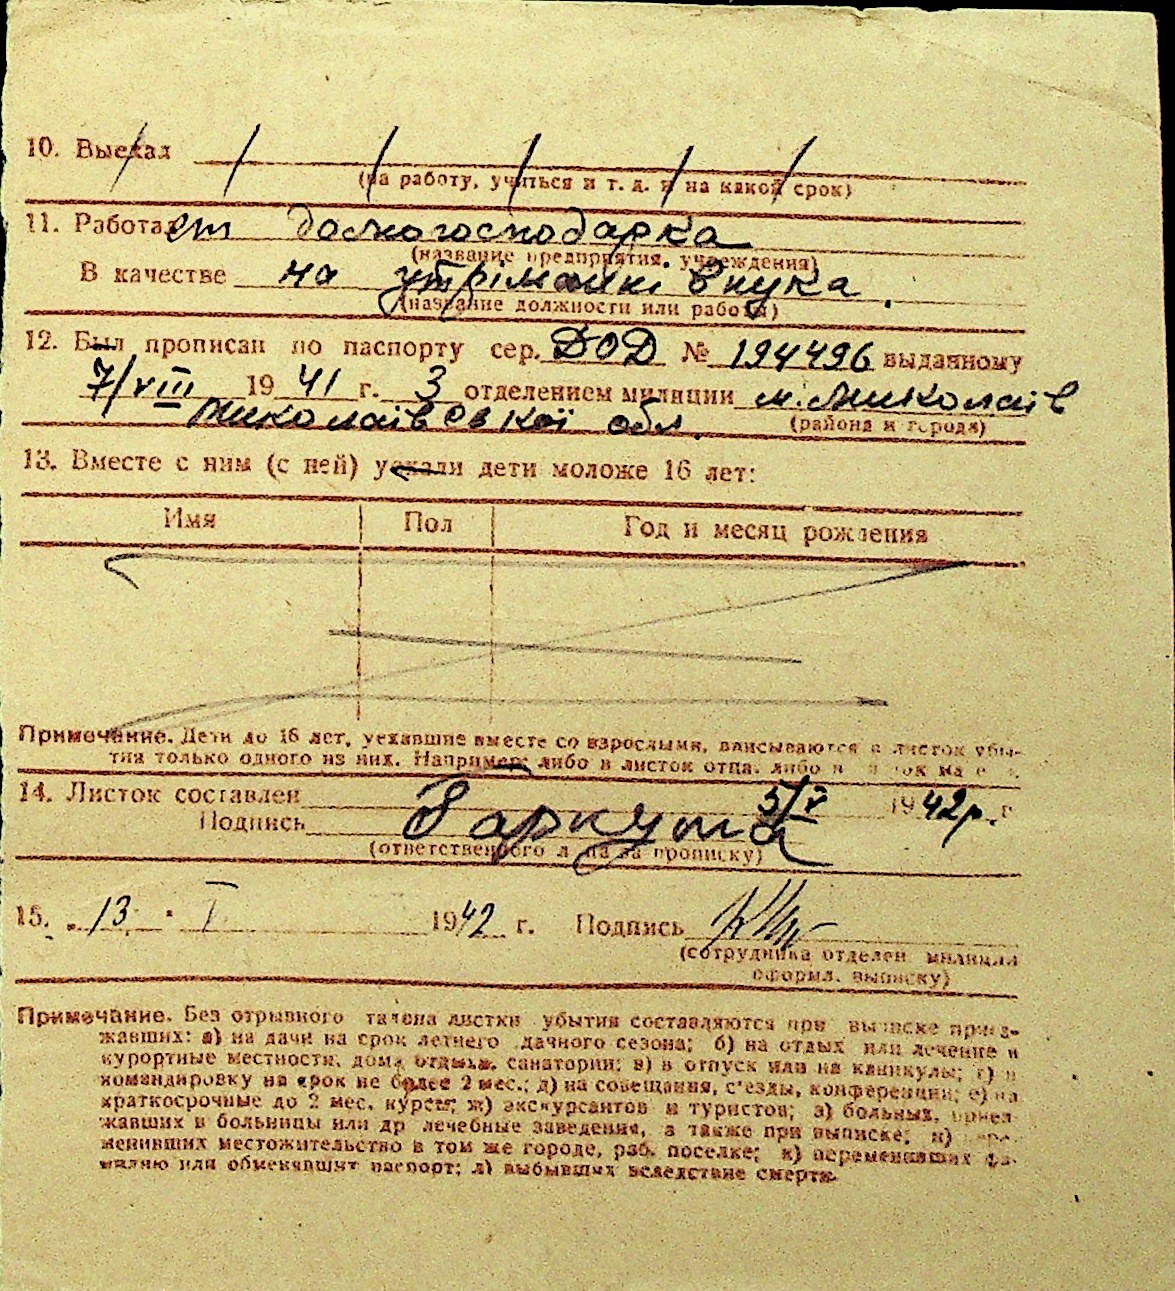 10. Выехал
(на работу, учиться и т. д. и на какой срок)
11. Работает домогосподарка
(название предприятия, учреждения)
В качестве на утріманні внука.
(название должности или работы)
12. Был прописан по паспорту сер. ДОД № 194496 выданному
7/VIII 1941 г. 3 отделением милиции м. Миколаїв
Миколаївської обл. (района и города)
13. Вместе с ним (с ней) уехали дети моложе 16 лет:
Имя Пол Год и месяц рождения
Примечание. Дети до 16 лет, уехавшие вместе со взрослыми, вписываются в листок убы-
тия только одного из них. Например: либо в листок отца, либо в
14. Листок составлен 5/V 1942р. г
Подпись
(ответственного лица за прописку)
15. 13 · I 1942 г. Подпись
(сотрудника отделен. милиции
оформл. выписку)
Примечание. Без отрывного талона листки убытия составляются при выписке приез-
жавших: а) на дачи на срок летнего дачного сезона; б) на отдых или лечение в
курортные местности, дома отдыха, санатории; в) в отпуск или на каникулы; г) в
командировку на срок не более 2 мес.; д) на совещания, с'езды, конференции; е) на
краткосрочные до 2 мес. курсы; ж) экскурсантов и туристов; з) больных, приез-
жавших в больницы или др лечебные заведения, а также при выписке; и) пере-
менивших местожительство в том же городе, раб. поселке; к) переменивших фа-
милию или обменявших паспорт; л) выбывших вследствие смерти.